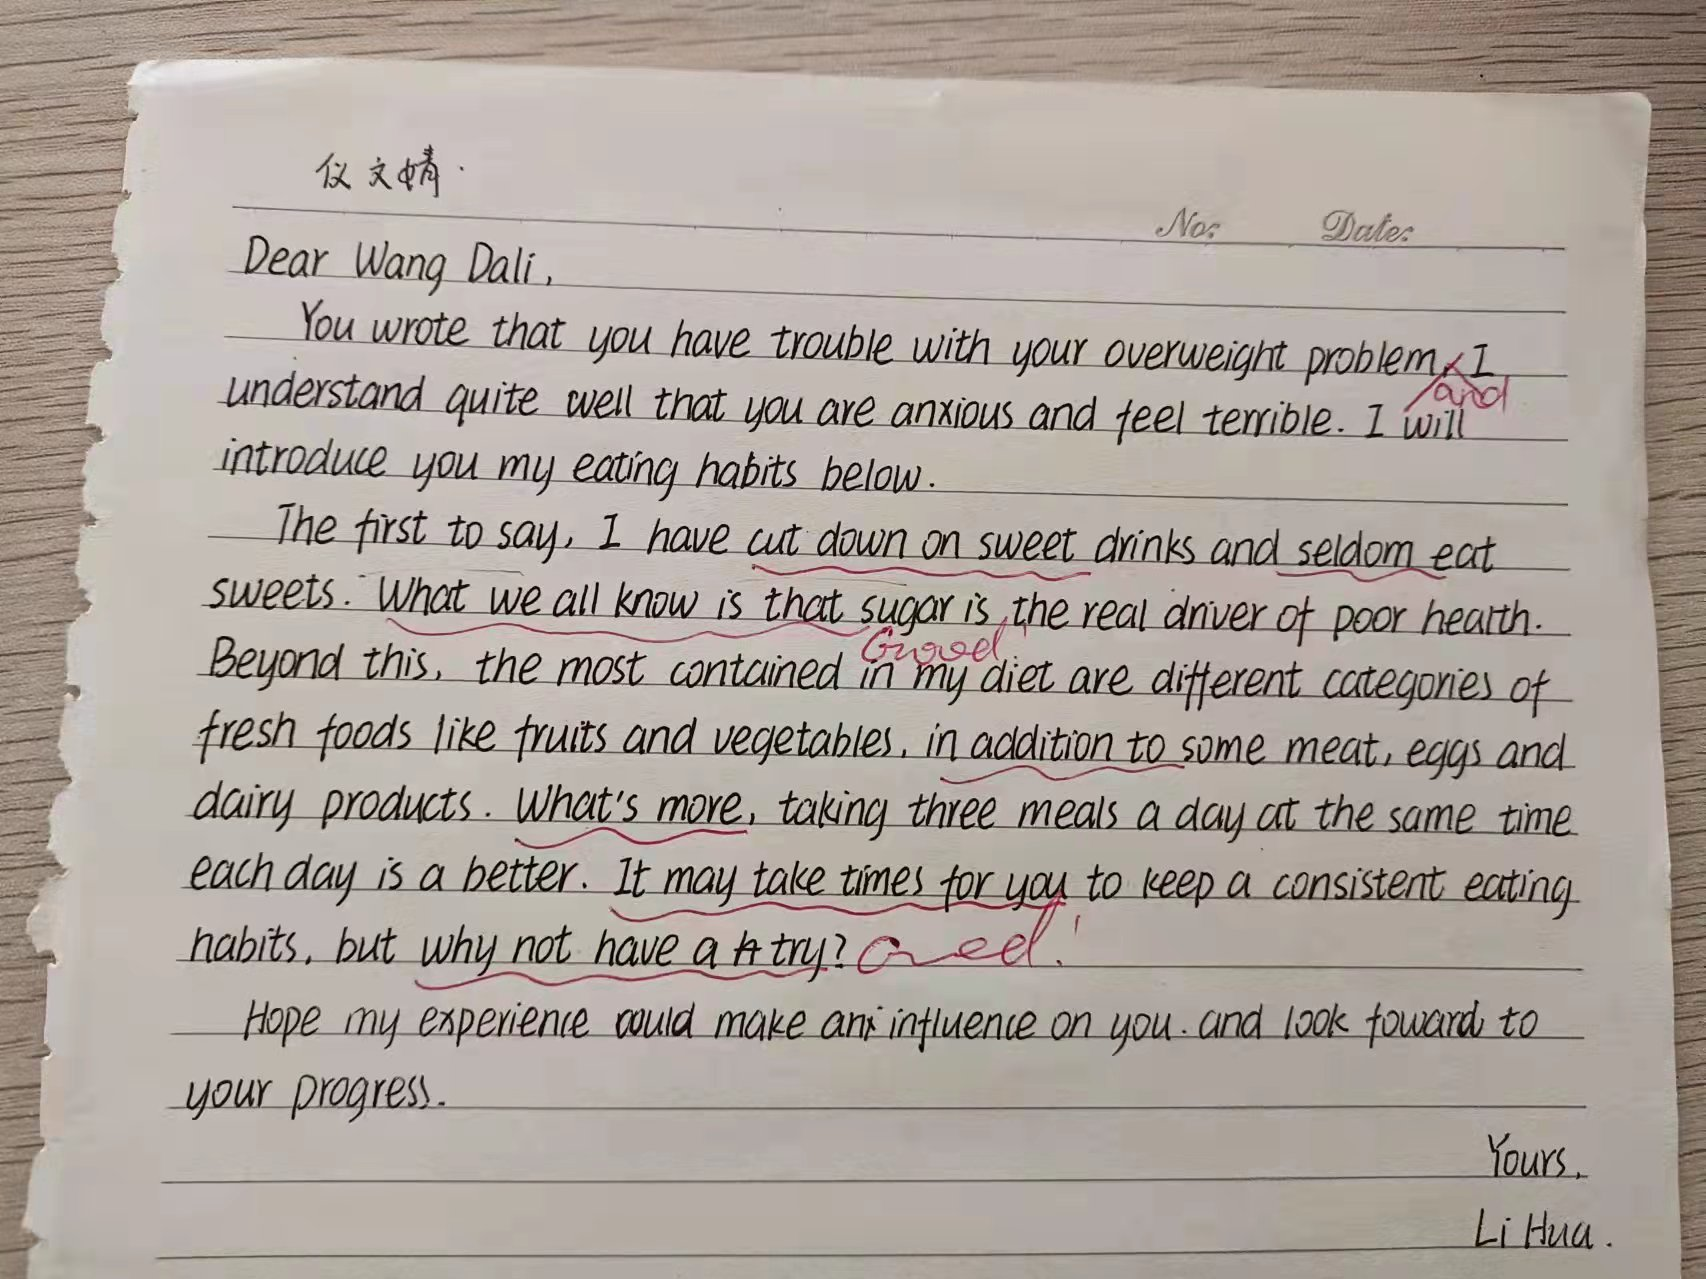 仪文婧.
No: Date:
Dear Wang Dali,
You wrote that you have trouble with your overweight problem, I
and
understand quite well that you are anxious and feel terrible. I will
introduce you my eating habits below.
The first to say, I have cut down on sweet drinks and seldom eat
sweets. What we all know is that sugar is the real driver of poor health.
Good!
Beyond this, the most contained in my diet are different categories of
fresh foods like fruits and vegetables, in addition to some meat, eggs and
dairy products. What's more, taking three meals a day at the same time
each day is a better. It may take times for you to keep a consistent eating
habits, but why not have a try? Good!
Hope my experience could make an influence on you. and look foward to
your progress.
Yours,
Li Hua.